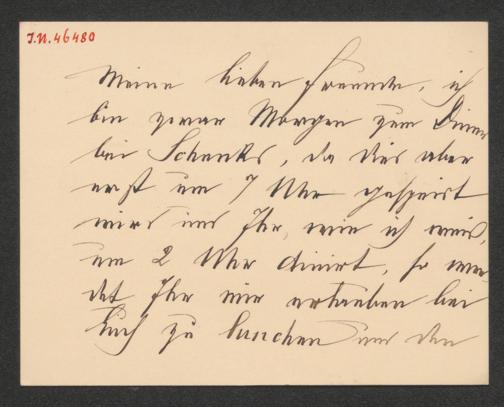 I.N. 46480
Meine lieben Freunde, ich
bin zwar Morgen zum Diner
bei Schenks, da dies aber
erst um 7 Uhr gespeist
wird und Ihr, wie ich weis,
um 2 Uhr dinirt, so wer
det Ihr mir erlauben bei
Euch zu lunchen und den